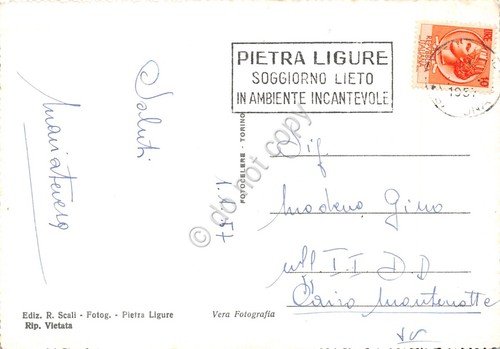 PIETRA LIGURE
SOGGIORNO LIETO
IN AMBIENTE INCANTEVOLE
195
Saluti
Mariateresa
FOTOCELERE - TORINO
do not copy
Sig
Modena Gino
II DD
Cairo Montenotte
SV
Ediz. R. Scali - Fotog. - Pietra Ligure
Rip. Vietata
Vera Fotografia